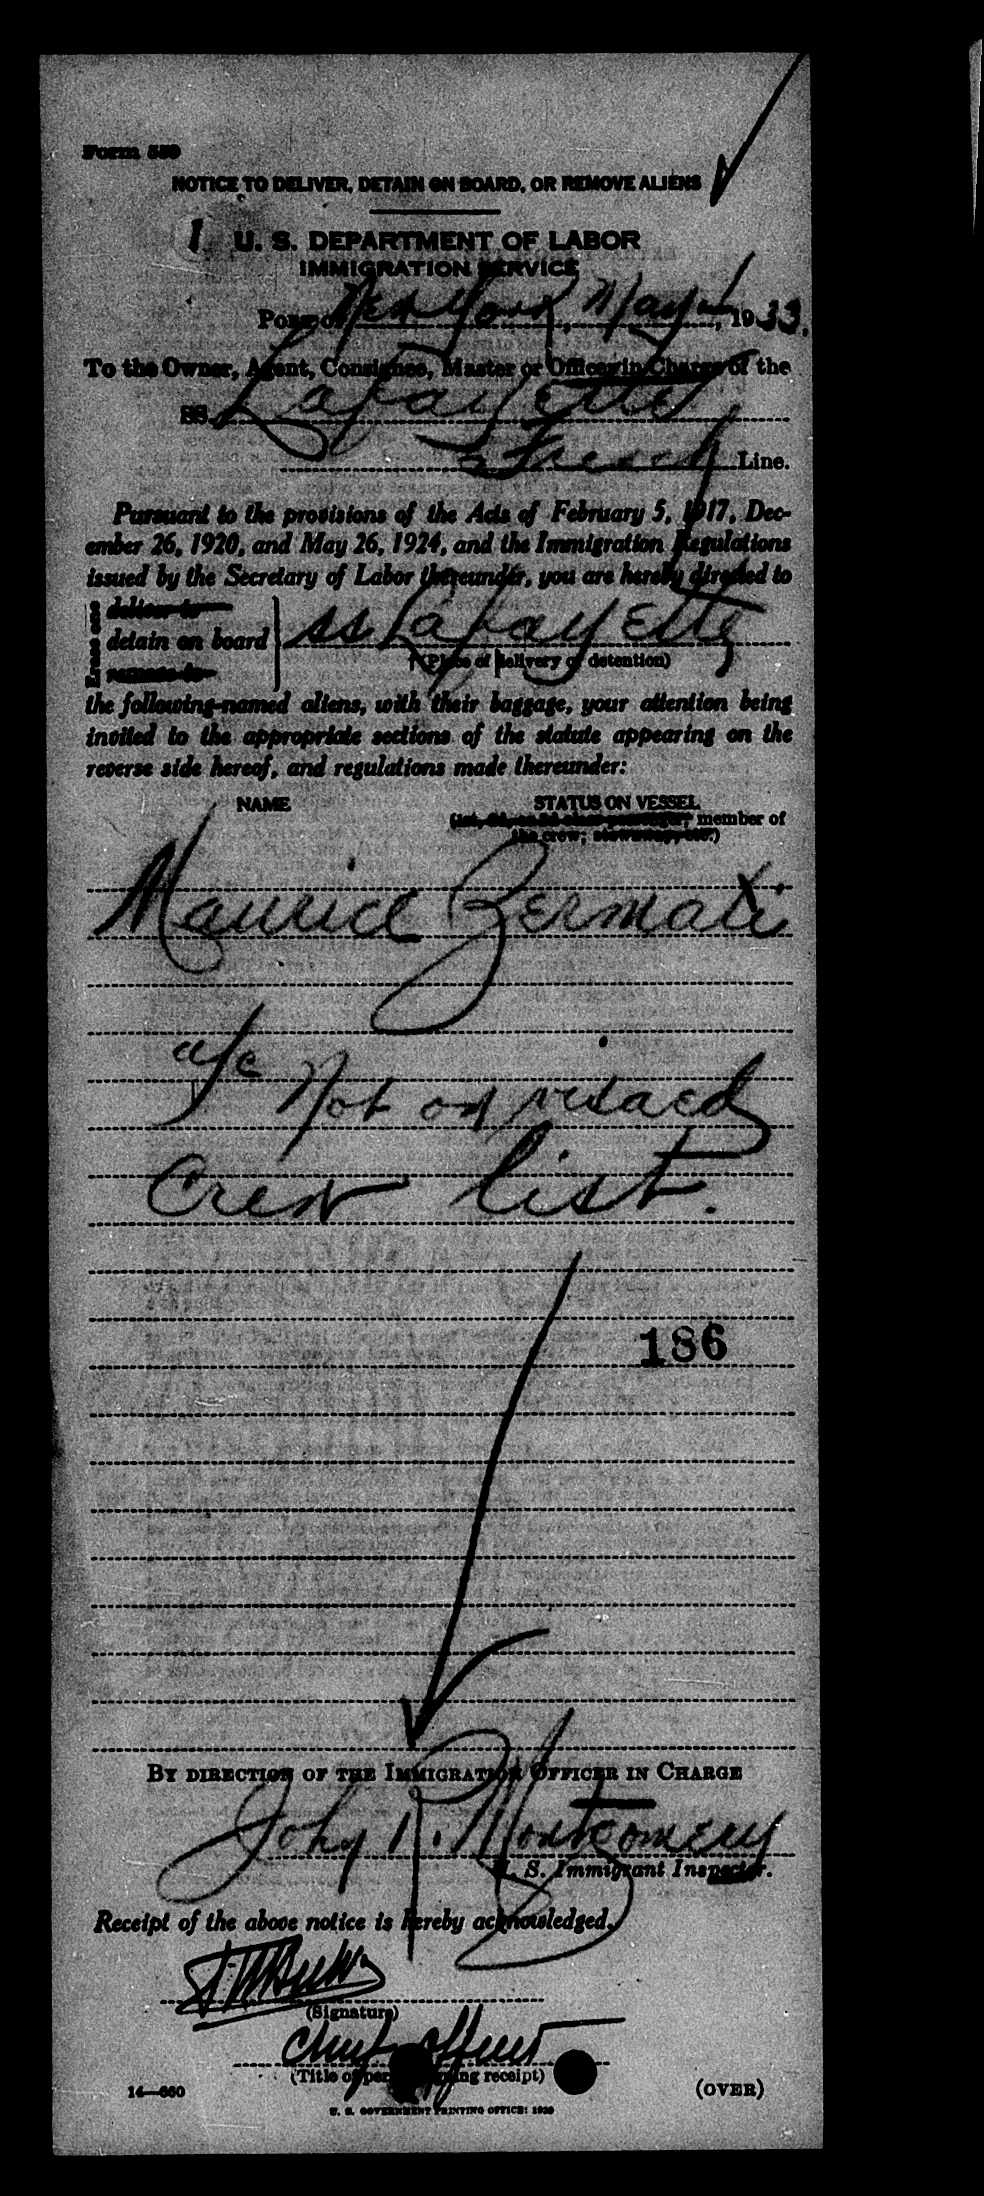 Form 559
NOTICE TO DELIVER, DETAIN ON BOARD, OR REMOVE ALIENS
1 U. S. DEPARTMENT OF LABOR
IMMIGRATION SERVICE
Port of New York, May 1, 1933.
To the Owner, Agent, Consignee, Master or Officer in Charge of the
SS. LaFayette
French Line.
Pursuant to the provisions of the Acts of February 5, 1917, Dec-
ember 26, 1920, and May 26, 1924, and the Immigration Regulations
issued by the Secretary of Labor thereunder, you are hereby directed to
deliver to
detain on board ss LaFayette
remove to
(Place of delivery or detention)
the following-named aliens, with their baggage, your attention being
invited to the appropriate sections of the statute appearing on the
reverse side hereof, and regulations made thereunder:
NAME STATUS ON VESSEL
member of
the crew;
Maurice Zermati
a/c Not on visaed
Crew list.
186
BY DIRECTION OF THE IMMIGRATION OFFICER IN CHARGE
John R. Montgomery
U. S. Immigrant Inspector.
Receipt of the above notice is hereby acknowledged.
(Signature)
Chief Officer
(Title of person signing receipt)
14—660 (OVER)
U. S. GOVERNMENT PRINTING OFFICE: 1929